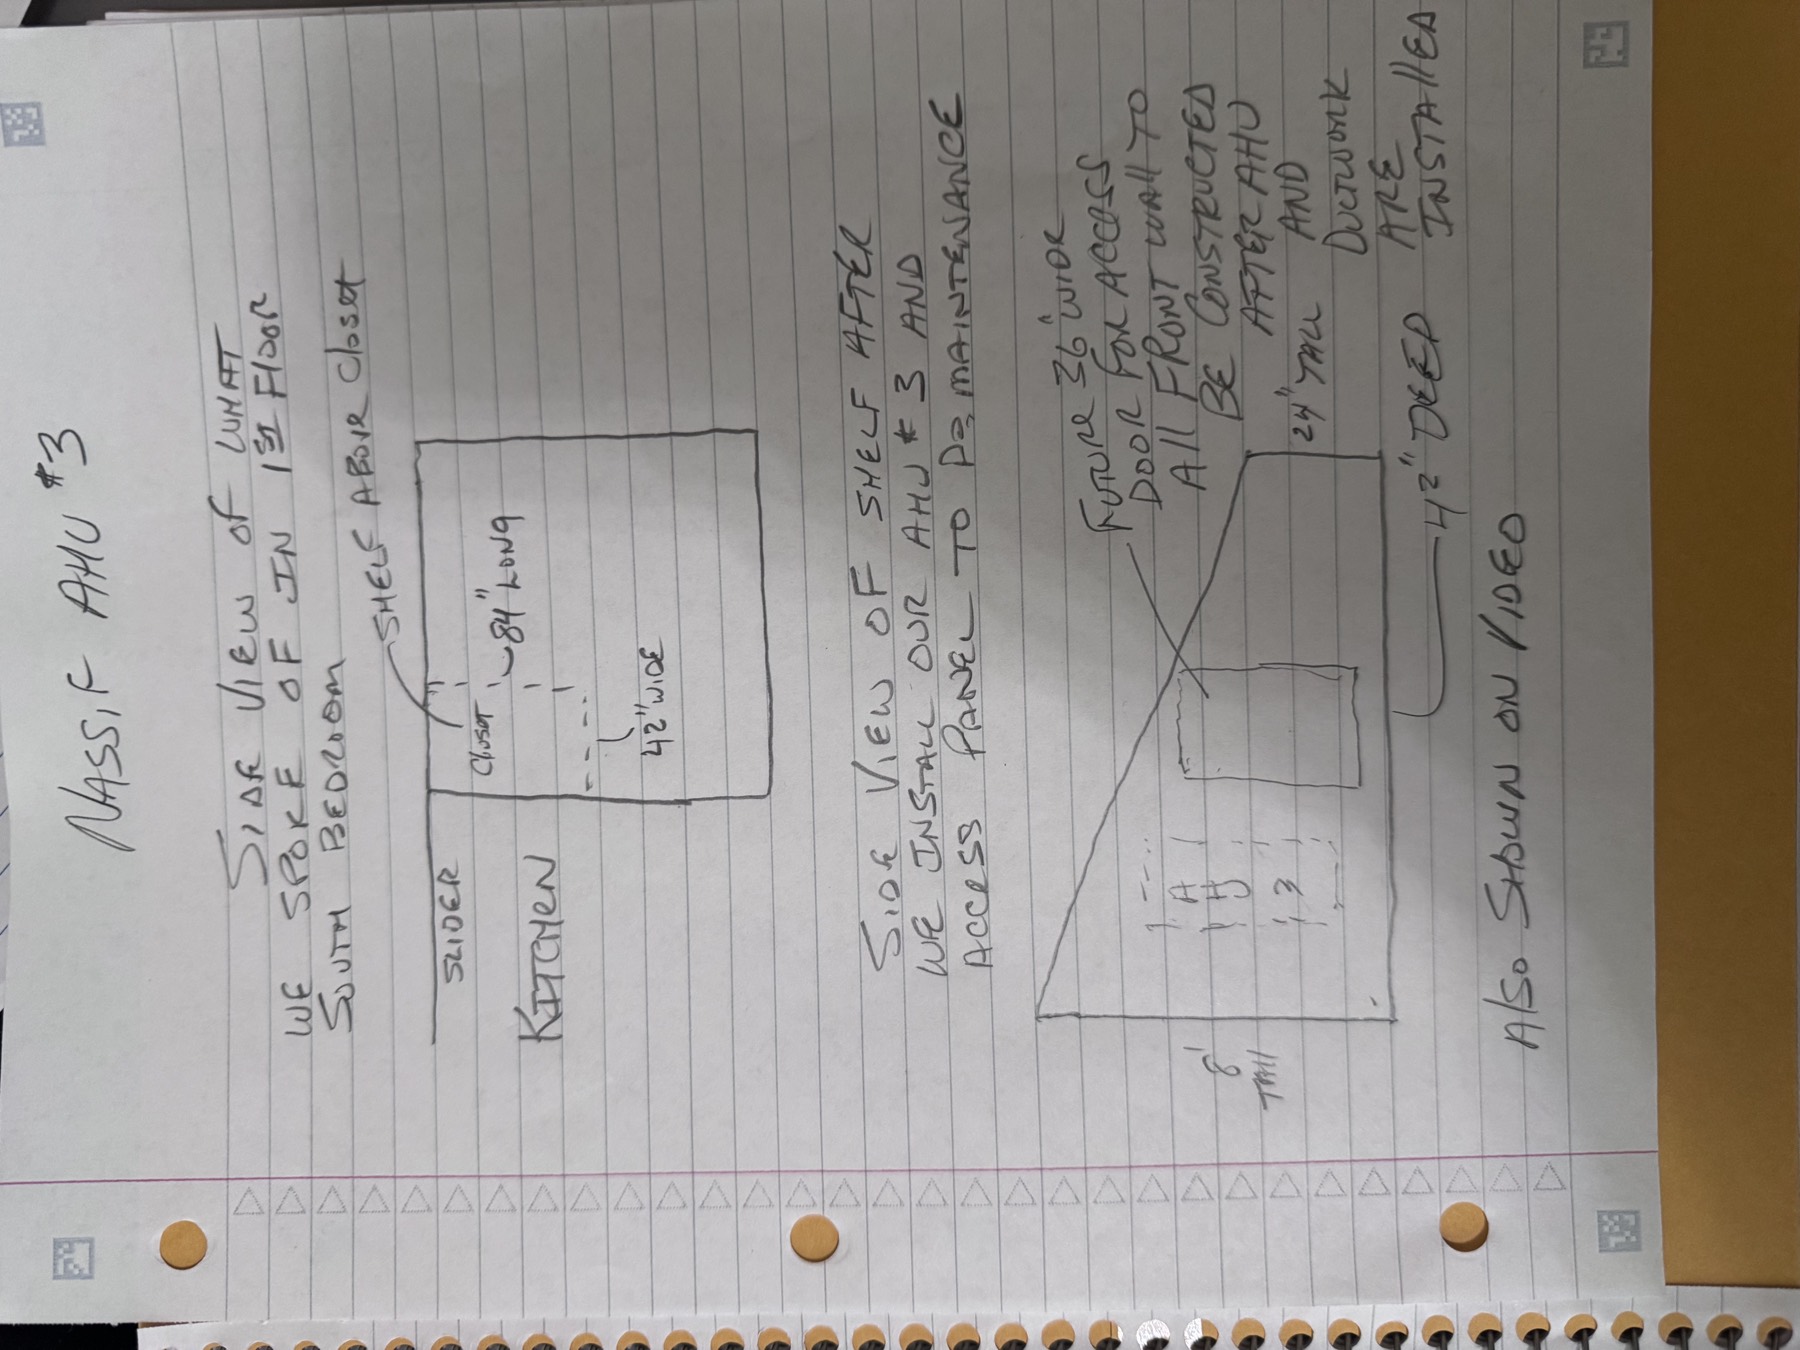 NASSIF AHU #3
SIDE VIEW OF WHAT
WE SPOKE OF IN 1ST FLOOR
SOUTH BEDROOM
SHELF ABOVE CLOSET
SLIDER
CLOSET
84" LONG
KITCHEN
42" WIDE
SIDE VIEW OF SHELF AFTER
WE INSTALL OUR AHU #3 AND
ACCESS PANEL TO DO MAINTENSANCE
FUTURE 36" WIDE
DOOR FOR ACCESS
All FRONT WAll TO
BE CONSTRUCTED
AFTER AHU
AND
DUCTWORK
ARE
INSTAllED
24" TALL
A
H
U
3
8'
TAll
42" DEEP
Also SHOWN ON VIDEO